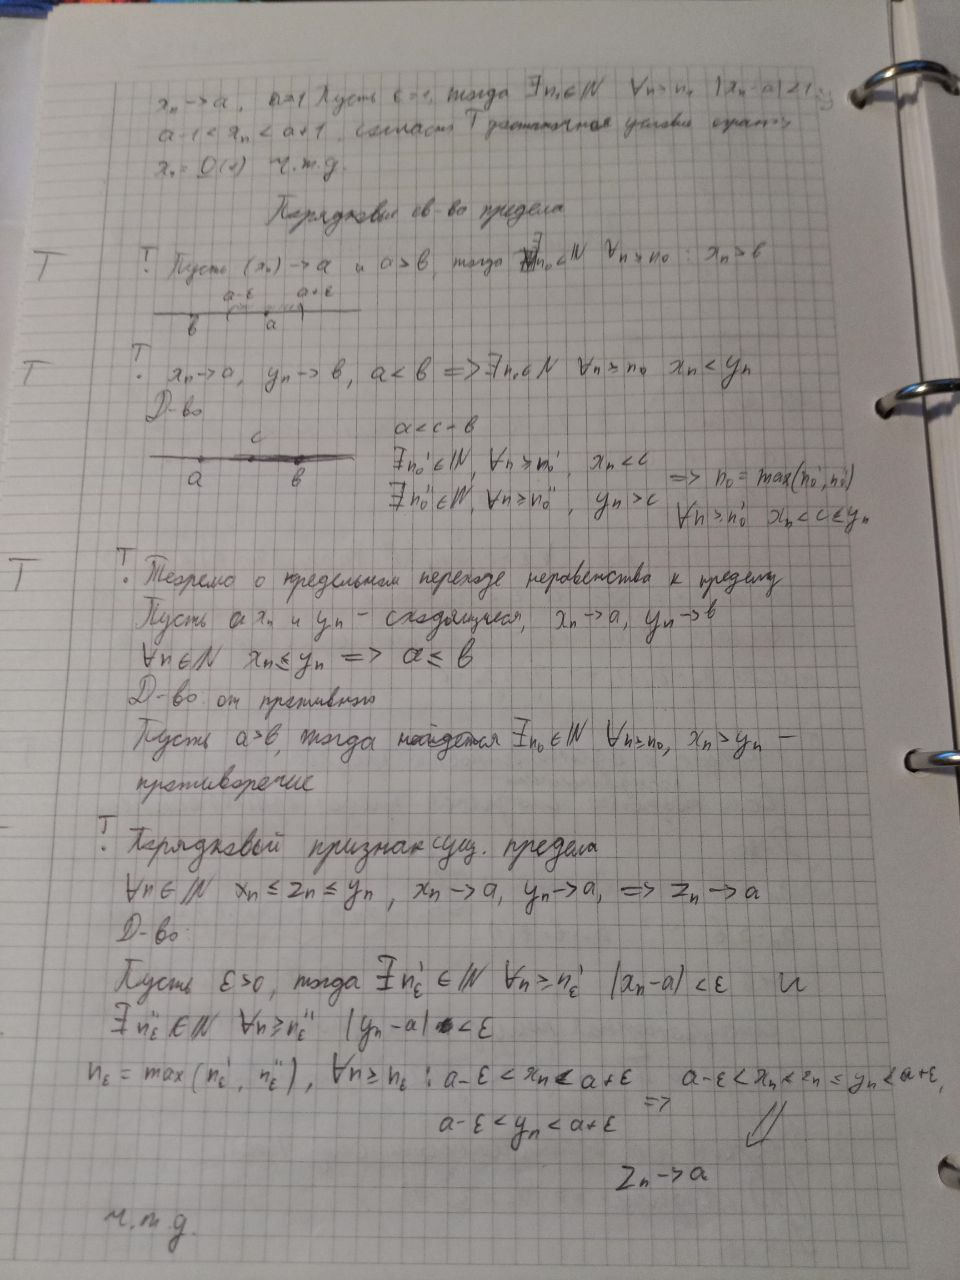 xₙ → a, Пусть ε = 1, тогда ∃n₁∈ℕ ∀n≥n₁ |xₙ-a|<1
a-1 < xₙ < a+1, согласно Т достаточное условие огранич
xₙ = O(1) ч.т.д.
Порядковые св-во предела
Т Т. Пусть (xₙ) → a и a>b, тогда ∃n₀∈ℕ ∀n≥n₀ : xₙ > b
a-ε a+ε
b a
Т Т. xₙ → a, yₙ → b, a < b => ∃n₀∈ℕ ∀n≥n₀ xₙ < yₙ
Д-во
c a<c<b
a b ∃n₀'∈ℕ, ∀n≥n₀', xₙ<c
∃n₀''∈ℕ, ∀n≥n₀'', yₙ>c => n₀ = max(n₀', n₀'')
∀n≥n₀ xₙ<c≤yₙ
Т Т. Теорема о предельном переходе неравенства к пределу
Пусть a xₙ и yₙ - сходящиеся, xₙ → a, yₙ → b
∀n∈ℕ xₙ ≤ yₙ => a ≤ b
Д-во от противного
Пусть a>b, тогда найдется ∃n₀∈ℕ ∀n≥n₀, xₙ>yₙ -
противоречие
Т. Порядковый признак сущ. предела
∀n∈ℕ xₙ ≤ zₙ ≤ yₙ, xₙ → a, yₙ → a, => zₙ → a
Д-во
Пусть ε>0, тогда ∃n'ε∈ℕ ∀n≥n'ε |xₙ-a|<ε и
∃n''ε∈ℕ ∀n≥n''ε |yₙ-a|<ε
nε = max(n'ε, n''ε), ∀n≥nε : a-ε < xₙ < a+ε => a-ε < xₙ ≤ zₙ ≤ yₙ < a+ε,
a-ε < yₙ < a+ε
zₙ → a
ч.т.д.